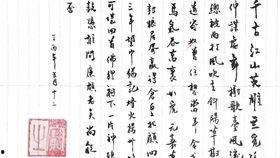 千古江山英雄無覓孫
仲謀處舞榭歌臺風流
總被雨打風吹去斜陽草樹
道寄奴曾住想當年金戈
馬氣吞萬里如虎元嘉草
封狼居胥贏得倉皇北顧四
三年望中猶記烽火揚州
可堪回首佛狸祠下一片神鴉
鼓憑誰問廉頗老矣尚能
否
丁酉年五月十二